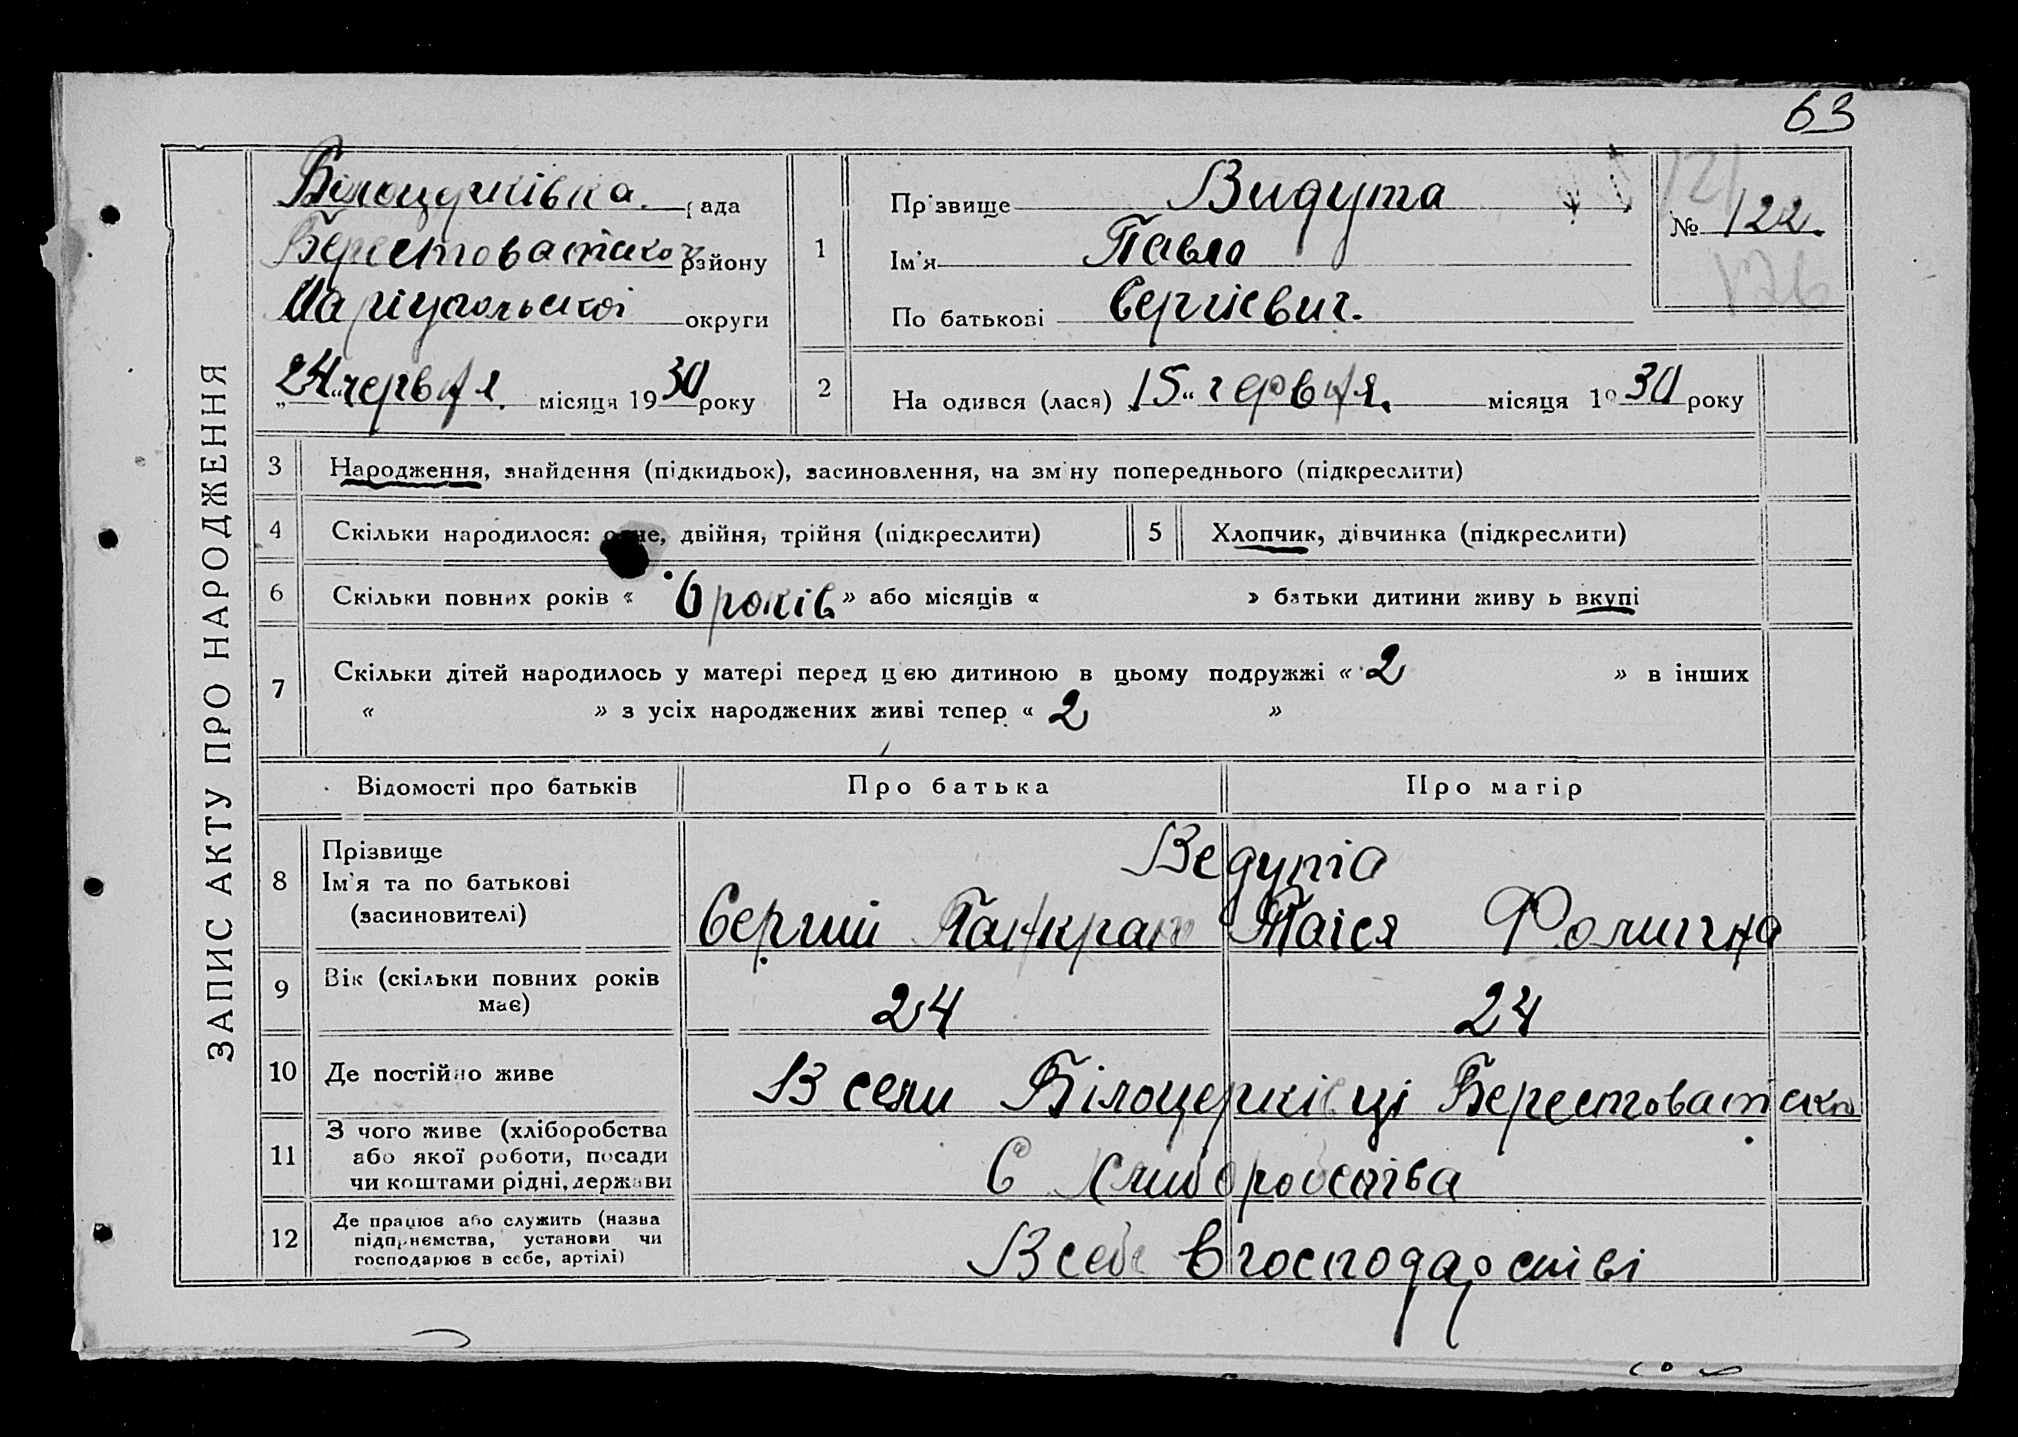 63
ЗАПИС АКТУ ПРО НАРОДЖЕННЯ
Білоцерківка рада
Берестоватської району
Маріупольської округи
„24" червня місяця 1930 року
1
Прізвище Видута
Ім'я Павло
По батькові Сергієвич.
121
№ 122.
126
2 На одився (лася) „15" червня. місяця 1930 року
3 Народження, знайдення (підкидьок), засиновлення, на зміну попереднього (підкреслити)
4 Скільки народилося: одне, двійня, трійня (підкреслити)
5 Хлопчик, дівчинка (підкреслити)
6 Скільки повних років « 6 років » або місяців « » батьки дитини живуть вкупі
7 Скільки дітей народилось у матері перед цією дитиною в цьому подружжі « 2 » в інших
« » з усіх народжених живі тепер « 2 »
Відомості про батьків Про батька Про матір
8 Прізвище
Ім'я та по батькові
(засиновителі)
Ведута
Сергий Панкрат Таїся
9 Вік (скільки повних років
має)
24 24
10 Де постійно живе В сели Білоцерківці Берестоватско
11 З чого живе (хліборобства
або якої роботи, посади
чи коштами рідні, держави
С хлиборобства
12 Де працює або служить (назва
підприємства, установи чи
господарює в себе, артілі)
В себе в господарстві